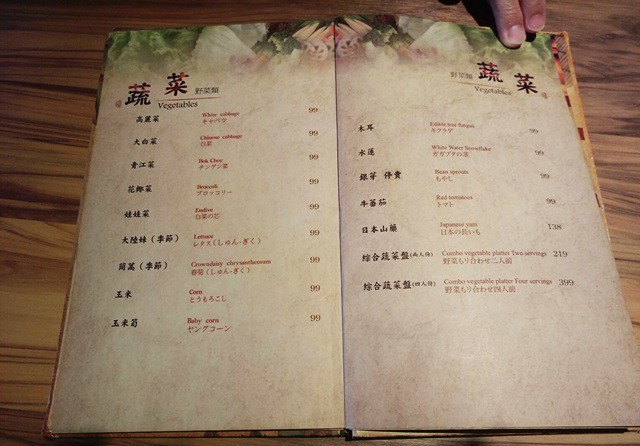 蔬 菜 野菜類
Vegetables
高麗菜 White cabbage 99
キャベツ
大白菜 Chinese cabbage 99
白菜
青江菜 Bok Choy 99
チンゲン菜
花椰菜 Broccoli 99
ブロッコリー
娃娃菜 Endive 99
白菜の芯
大陸妹（季節） Lettuce 99
レタス(しゅん・ぎく)
茼萵（季節） Crowndaisy chrysanthemum 99
春菊(しゅん・ぎく)
玉米 Corn 99
とうもろこし
玉米筍 Baby corn 99
ヤングコーン
野菜類 蔬 菜
Vegetables
木耳 Edible tree fungus 99
キクラゲ
水蓮 White Water Snowflake 99
ガガブタの茎
銀芽 停賣 Bean sprouts 99
もやし
牛蕃茄 Red tomatoes 99
トマト
日本山藥 Japanese yam 138
日本の長いも
綜合蔬菜盤(兩人份) Combo vegetable platter Two servings 219
野菜もり合わせ二人前
綜合蔬菜盤(四人份) Combo vegetable platter Four servings 399
野菜もり合わせ四人前